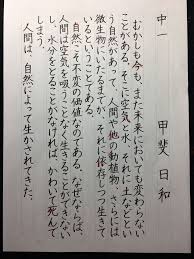 中一　甲斐日和
むかしも今も、また未来においても変わらない
ことがある。そこに空気と水、それに土などとい
う自然があって、人間や他の動植物、さらには
微生物にいたるまでが、それに依存しつつ生きて
いるということである。
自然こそ不変の価値なのである。なぜならば、
人間は空気を吸うことなく生きることができない
し、水分をとることがなければ、かわいて死んで
しまう。
人間は、自然によって生かされてきた。